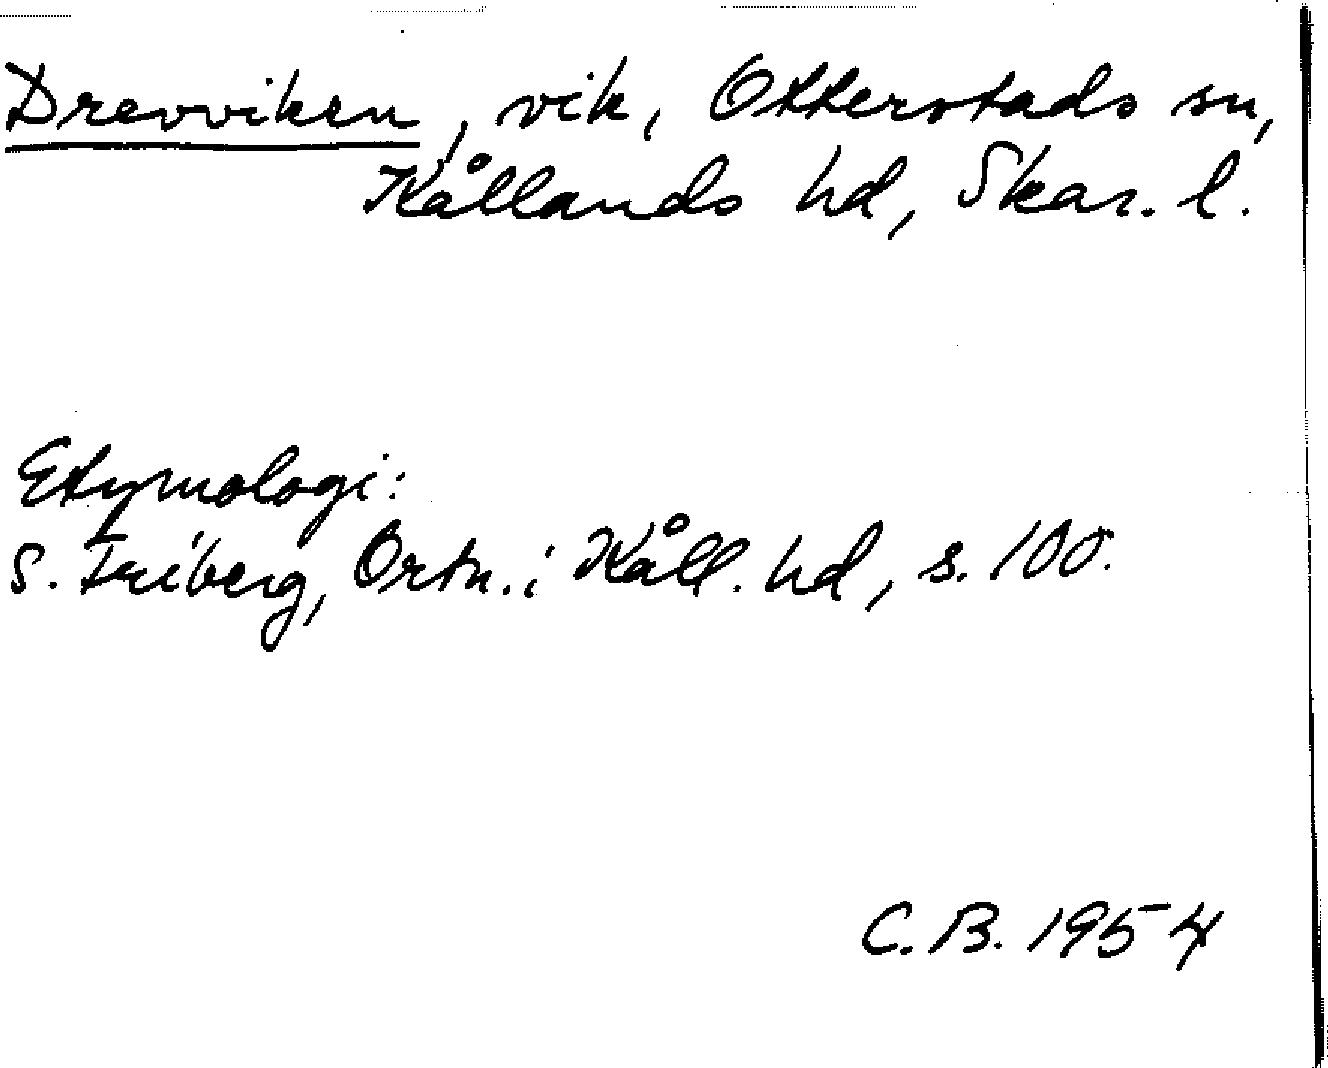 Drevviken, vik, Otterstads sn,
Kållands hd, Skar. l.
Etymologi:
S. Friberg, Ortn. i Kåll. hd, s. 100.
C. B. 1954